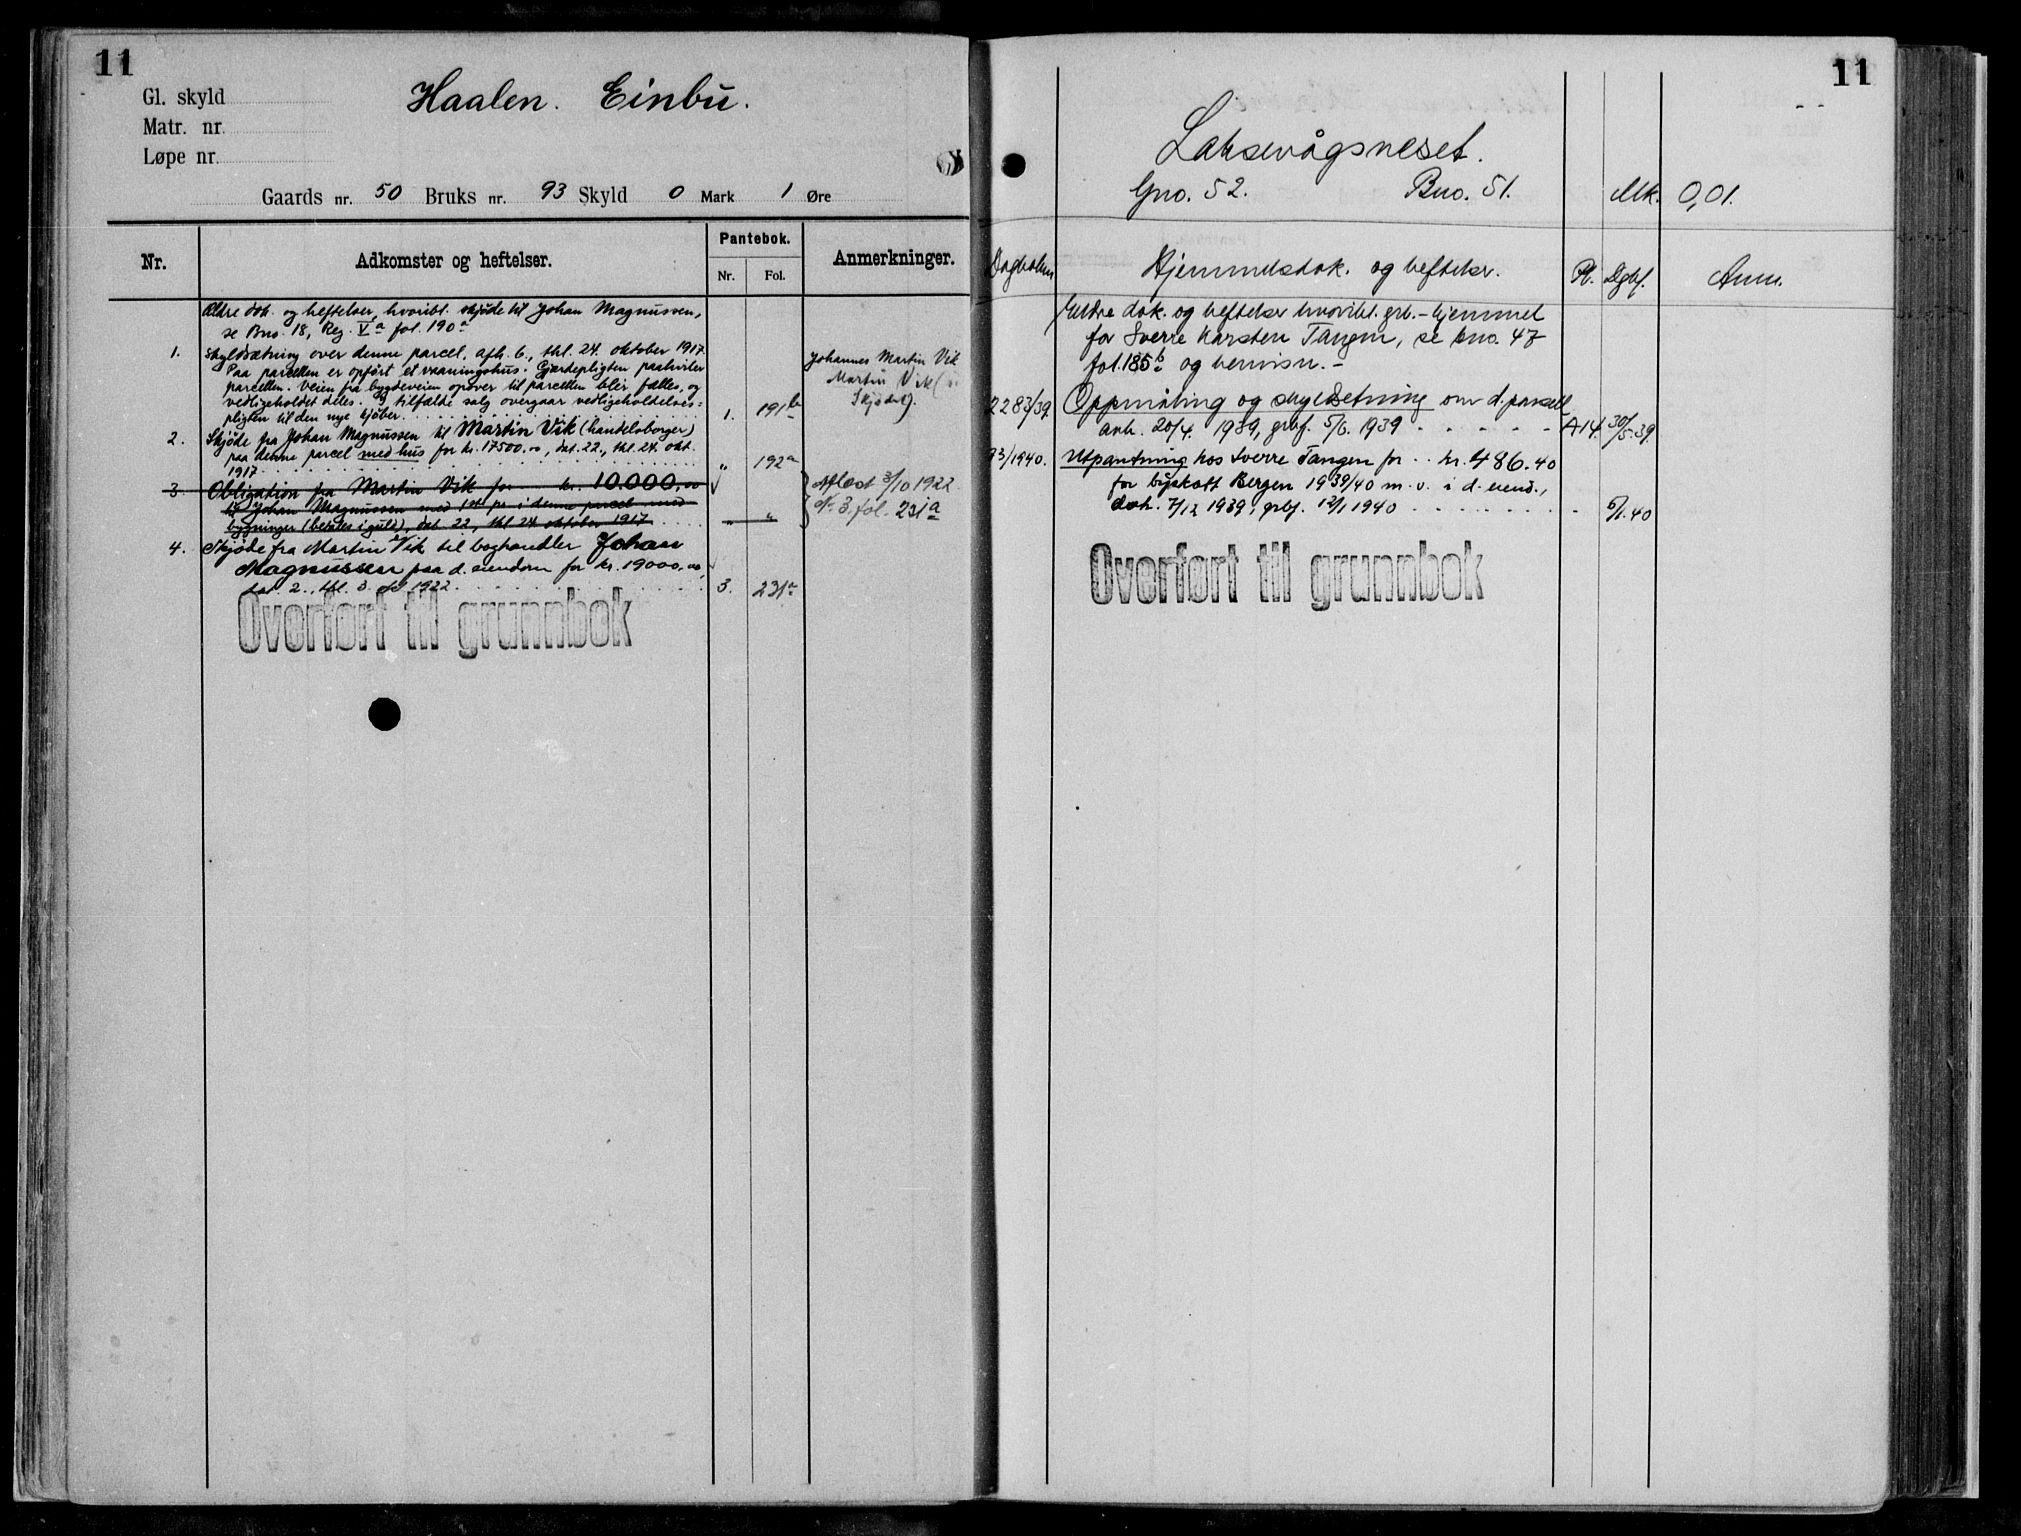 11
Gl. skyld
Matr. nr.
Løpe nr.
Haalen. Einbu.
Gaards nr. 50 Bruks nr. 93 Skyld 0 Mark 1 Øre
Nr.
Adkomster og heftelser.
Pantebok.
Nr. Fol.
Anmerkninger.
Ældre dok. og heftelser, hvoribl. skjøde til Johan Magnussen,
se Bno. 18, Reg. V a fol. 190 a
1. Skyldsætning over denne parcel, afh. 6., thl. 24. oktober 1917.
Paa parcellen er opført et vaaningshus. Gjærdepligten paahviler
parcellen. Veien fra bygdeveien opover til parcellen blir fælles, og
vedligeholdet deles. I tilfælde salg overgaar vedligeholdelses-
pligten til den nye kjøber. 1. 191 b
Johannes Martin Vik
Martin Vik
Skjødet).
2. Skjøde fra Johan Magnussen til Martin Vik (handelsborger)
paa denne parcel med hus for kr. 17500.00, dat. 22., thl. 24. okt.
1917. " 192 a
3. Obligation fra Martin Vik for kr. 10.000,00
til Johan Magnussen med 1ste pr. i denne parcel med
bygninger (betales i guld), dat. 22., thl. 24. oktober 1917. " "
Aflæst 3/10 1922
Nr. 3. fol. 231 a
4. Skjøde fra Martin Vik til boghandler Johan
Magnussen paa d. eiendom for kr. 19000.00,
dat. 2., thl. 3. 1922. 3. 231 a
Overført til grunnbok
11
Laksevågsneset.
Gno. 52. Bno. 51. Mk. 0,01.
Dagboknr. Hjemmelsdok. og heftelser. Pb. Dgbf. Anm.
Eldre dok. og heftelser hvoribl. grb.-hjemmel
for Sverre Karsten Tangen, se bno. 47
fol. 185 b og henvisn. -
2283/39. Oppmåling og skyldsetning over d. parsell
avh. 20/4. 1939, grbf. 5/6. 1939 A14. 30/5-39.
93/1940. Utpantning hos Sverre Tangen for kr. 486.40
for byskatt Bergen 1939/40 m. v. i d. eiend.,
dok. 7/12 1939, grbf. 12/1 1940 5/1.40
Overført til grunnbok